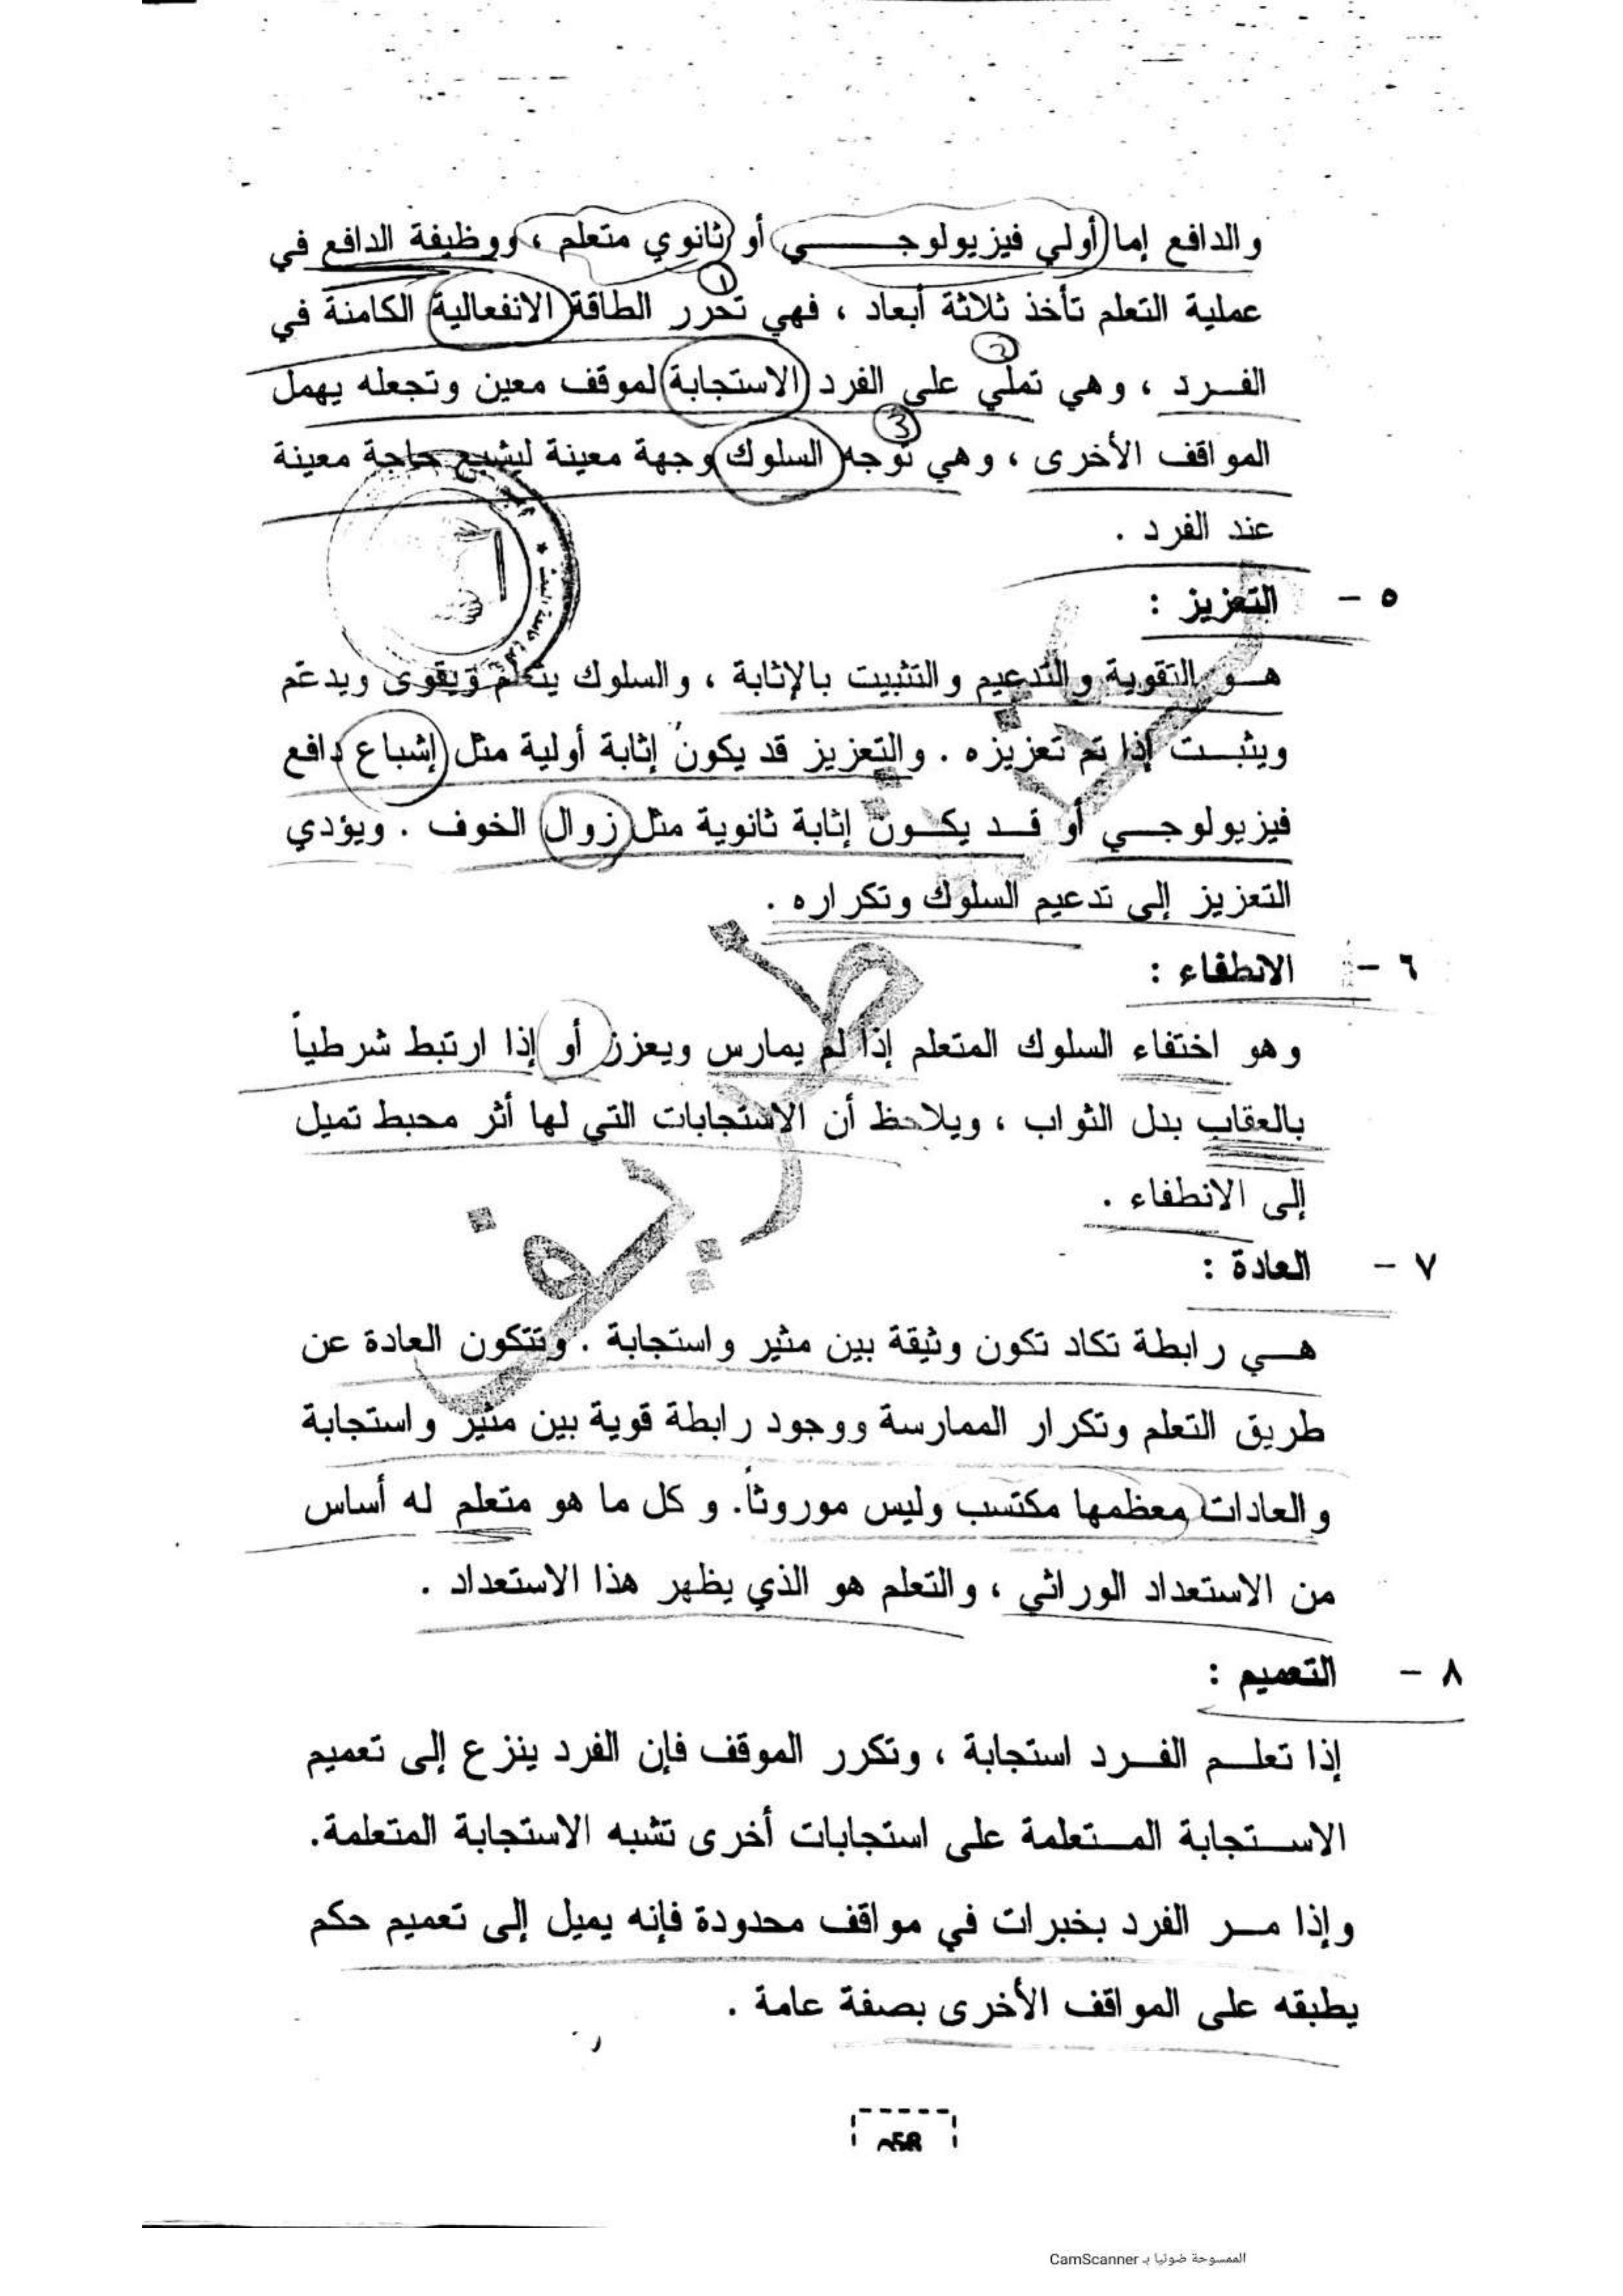 والدافع إما أولي فيزيولوجــــــي أو ثانوي متعلم ، ووظيفة الدافع في
①
عملية التعلم تأخذ ثلاثة أبعاد ، فهي تحرر الطاقة الانفعالية الكامنة في
②
الفــرد ، وهي تملي على الفرد الاستجابة لموقف معين وتجعله يهمل
③
المواقف الأخرى ، وهي توجه السلوك وجهة معينة ليشبع حاجة معينة
عند الفرد .
٥ – التعزيز :
هــو التقوية والتدعيم والتثبيت بالإثابة ، والسلوك يتعلم ويقوى ويدعم
ويثبــت إذا تم تعزيزه . والتعزيز قد يكون إثابة أولية مثل إشباع دافع
فيزيولوجــي أو قــد يكــون إثابة ثانوية مثل زوال الخوف . ويؤدي
التعزيز إلى تدعيم السلوك وتكراره .
٦ – الانطفاء :
وهو اختفاء السلوك المتعلم إذا لم يمارس ويعزز أو إذا ارتبط شرطياً
بالعقاب بدل الثواب ، ويلاحظ أن الاستجابات التي لها أثر محبط تميل
إلى الانطفاء .
٧ – العادة :
هــي رابطة تكاد تكون وثيقة بين مثير واستجابة . وتتكون العادة عن
طريق التعلم وتكرار الممارسة ووجود رابطة قوية بين مثير واستجابة
والعادات معظمها مكتسب وليس موروثاً. و كل ما هو متعلم له أساس
من الاستعداد الوراثي ، والتعلم هو الذي يظهر هذا الاستعداد .
٨ – التعميم :
إذا تعلــم الفــرد استجابة ، وتكرر الموقف فإن الفرد ينزع إلى تعميم
الاســتجابة المــتعلمة على استجابات أخرى تشبه الاستجابة المتعلمة.
وإذا مــر الفرد بخبرات في مواقف محدودة فإنه يميل إلى تعميم حكم
يطبقه على المواقف الأخرى بصفة عامة .
الممسوحة ضوئيا بـ CamScanner